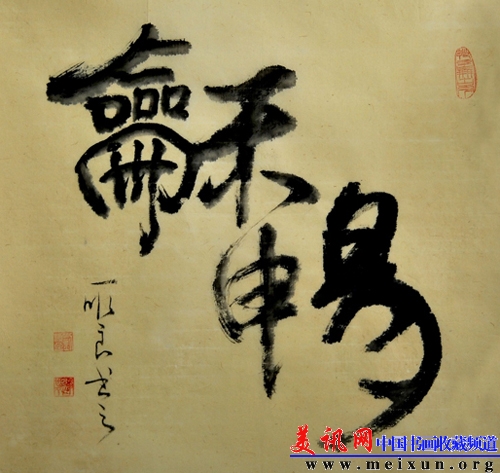 龢暢
良书之
美讯网 中国书画收藏频道
www.meixun.org